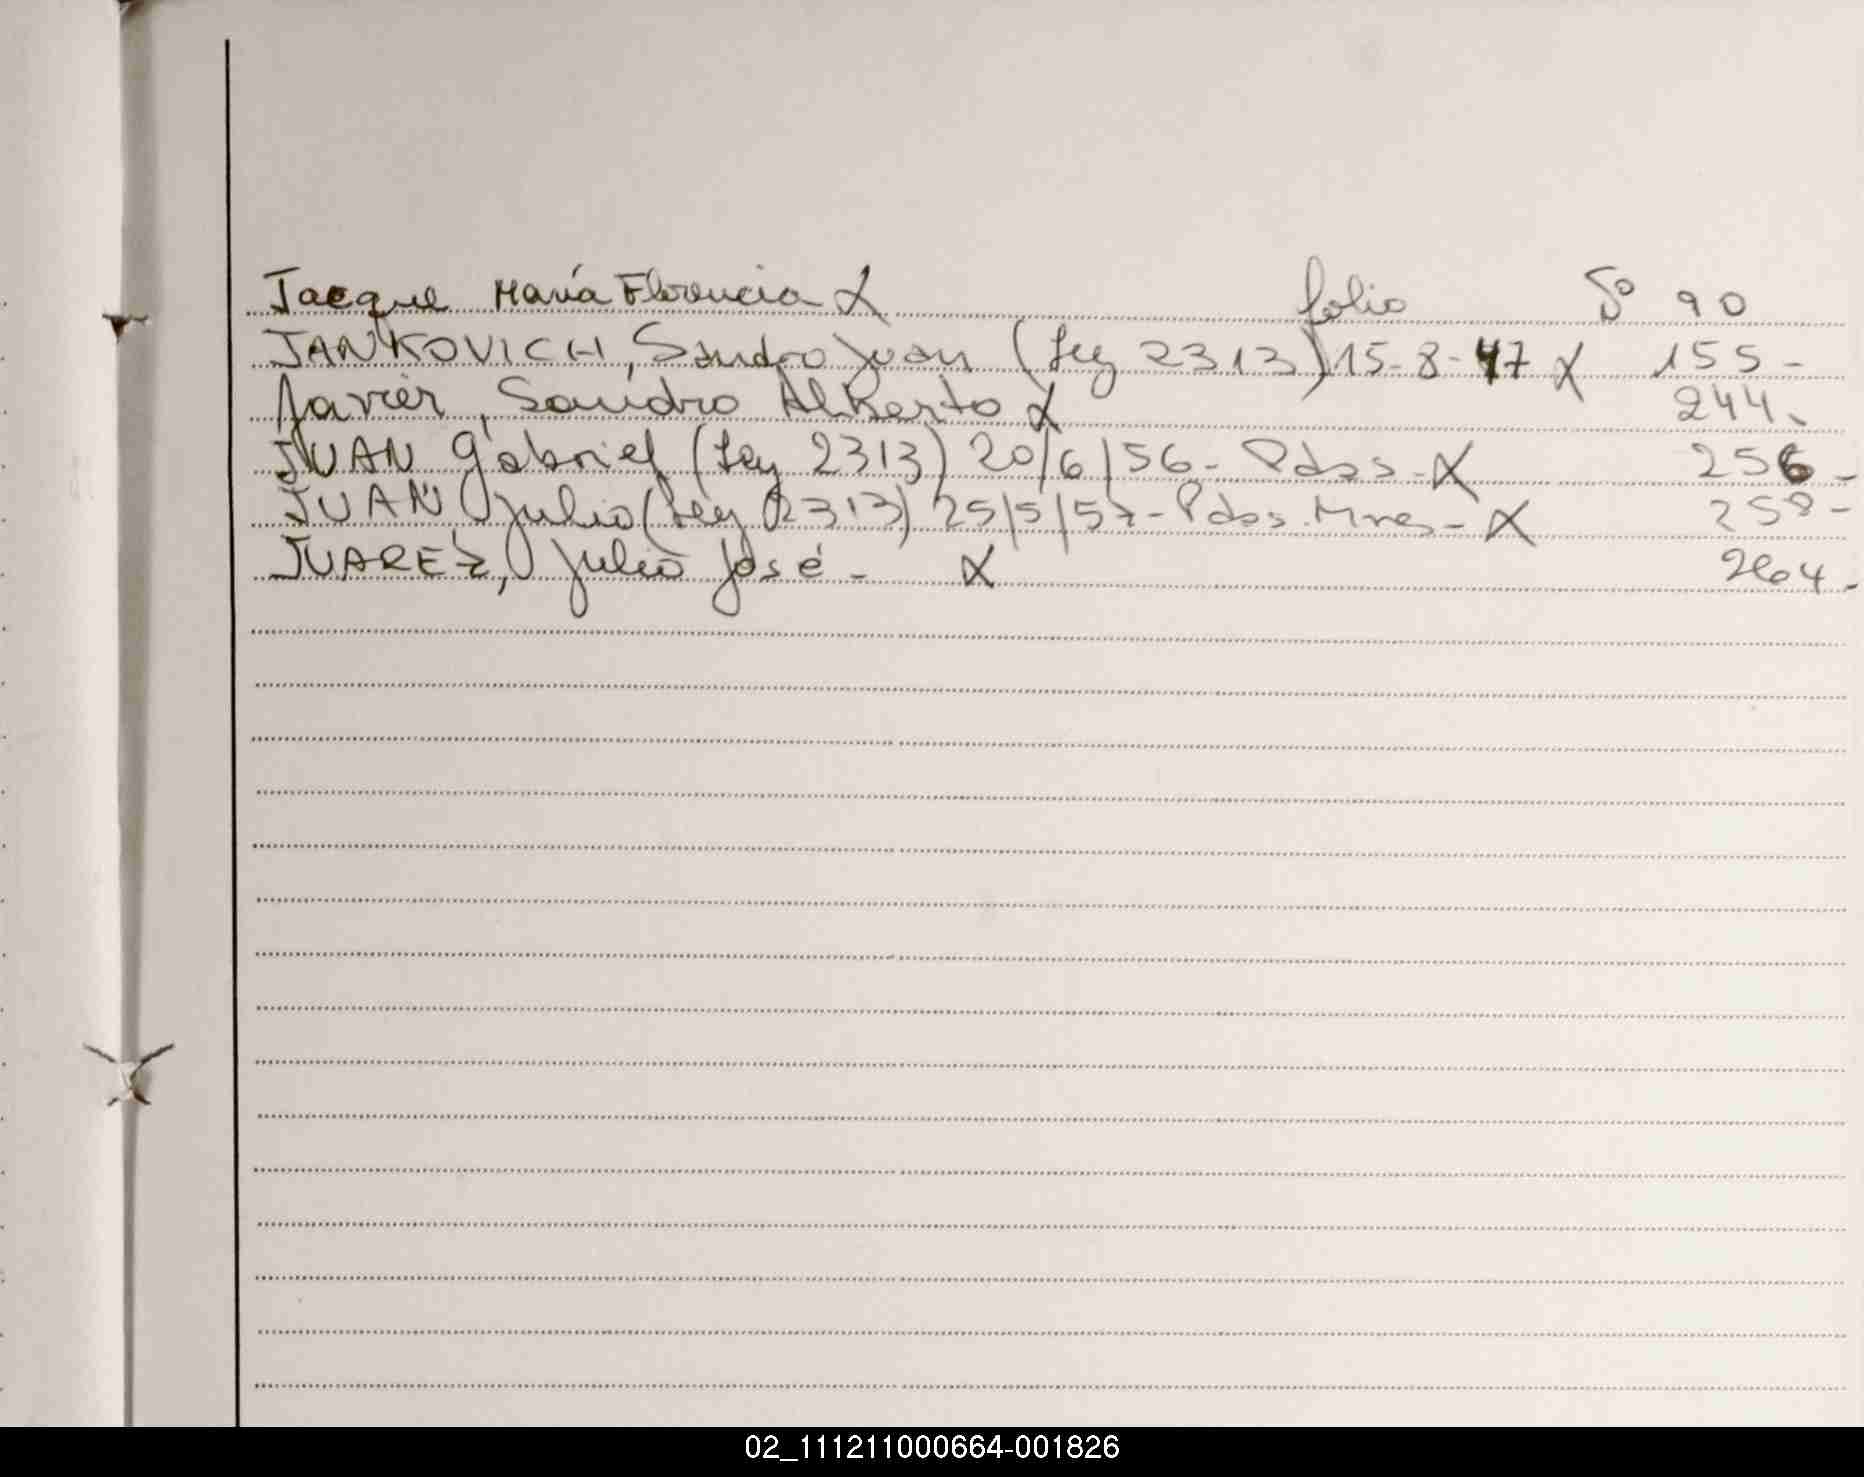 Jacque María Florencia X folio Nº 90
JANKOVICH, Sandro Juan (Ley 2313) 15-8-47 X 155-
Javier, Sandro Alberto X 244-
JUAN Gabriel (Ley 2313) 20/6/56- Pdas- X 256-
JUAN Julio (Ley 2313) 25/5/57- Pdas. Mnes- X 258-
JUAREZ, Julio José- X 264-
02_111211000664-001826